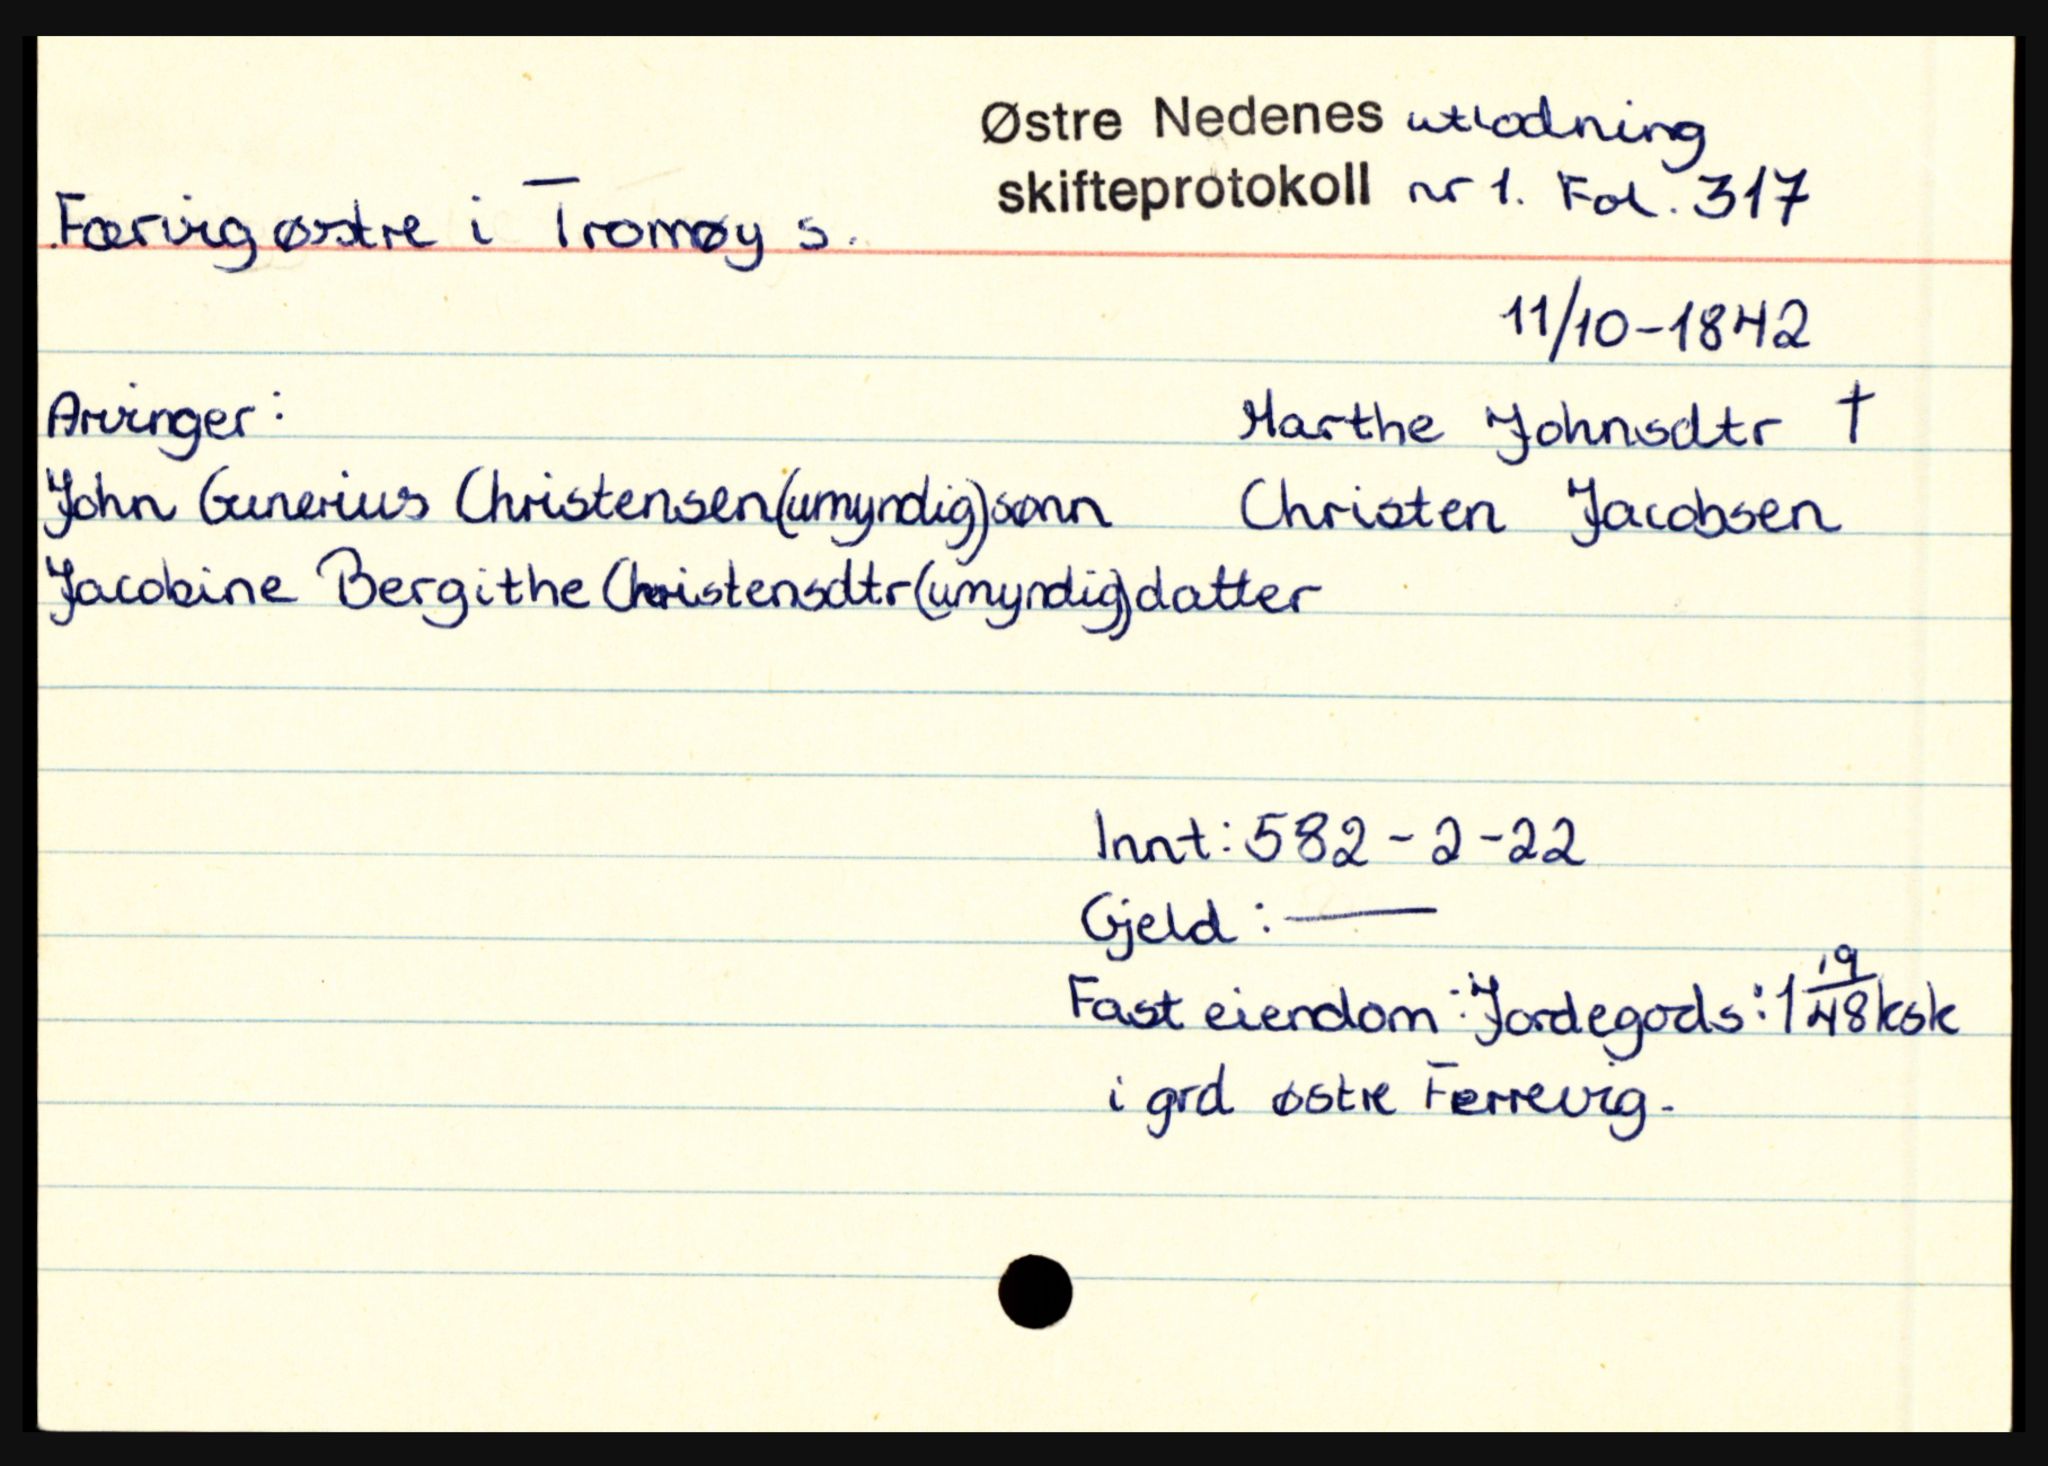 Østre Nedenes utlodning
skifteprotokoll nr 1. Fol. 317
Færvig østre i Tromøy s.
11/10-1842
Arvinger:
Marthe Johnsdtr †
John Gunerius Christensen (umyndig) sønn
Christen Jacobsen
Jacobine Bergithe Christensdtr (umyndig) datter
Innt: 582 - 2 - 22
Gjeld: —
Fast eiendom: Jordegods: 1 19/48 ksk
i grd østre Ferrevig.